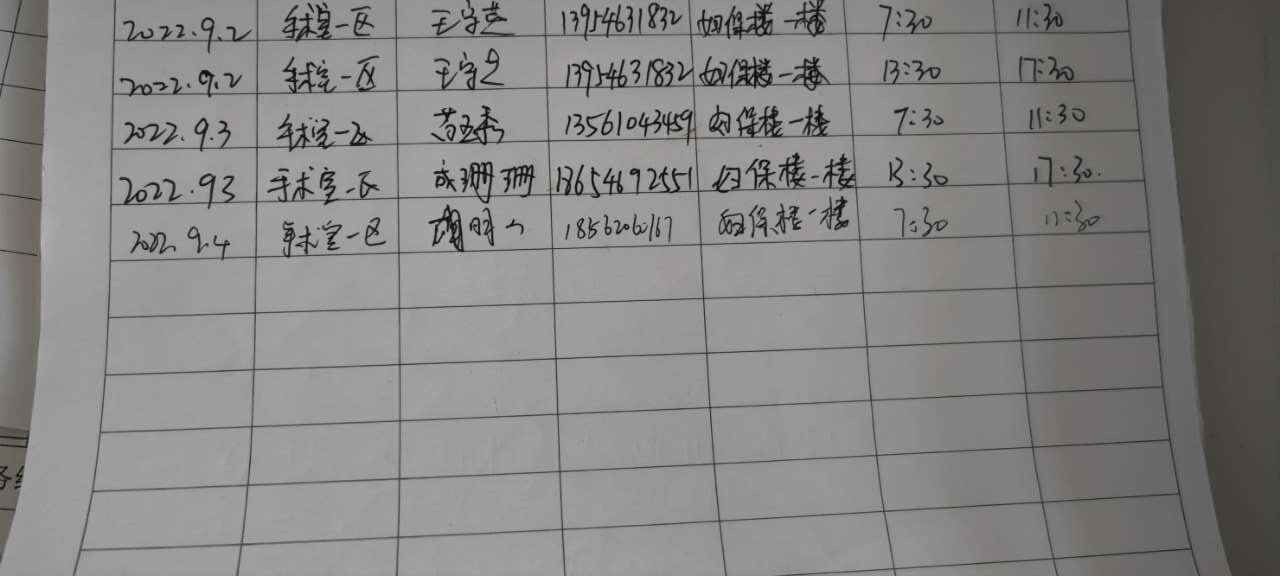 2022.9.2 手术室一区 王守芝 13954631832 妇保楼一楼 7:30 11:30
2022.9.2 手术室一区 王守芝 13954631832 妇保楼一楼 13:30 17:30
2022.9.3 手术室一区 苏玉秀 13561043459 妇保楼一楼 7:30 11:30
2022.93 手术室一区 成珊珊 18654692551 妇保楼一楼 13:30 17:30.
2022.9.4 手术室一区 18562060167 妇保楼一楼 7:30 11:30